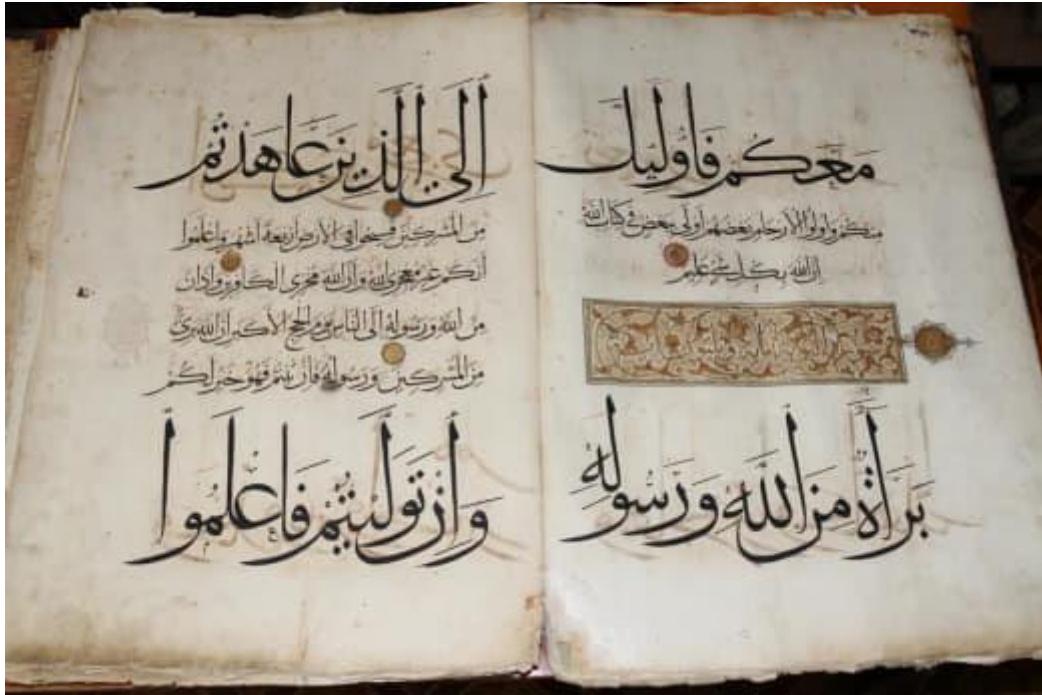 معكم فاوليك
منكم واولوا الارحام بعضهم اولى ببعض في كتاب الله
ان الله بكل شي عليم
براة من الله ورسوله
الى الذين عاهدتم
من المشركين فسيحوا في الارض اربعة اشهر واعلموا
انكم غير معجزي الله وان الله مخزي الكافرين واذان
من الله ورسوله الى الناس يوم الحج الاكبر ان الله بري
من المشركين ورسوله فان تبتم فهو خير لكم
وان توليتم فاعلموا